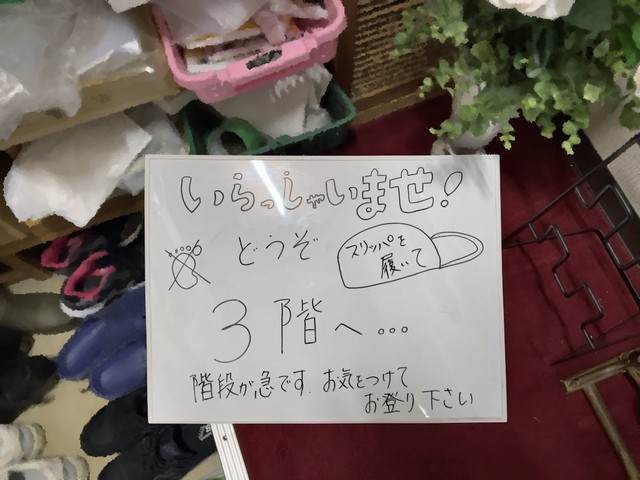 いらっしゃいませ!
どうぞ
スリッパを
履いて
3階へ...
階段が急です. お気をつけて
お登り下さい